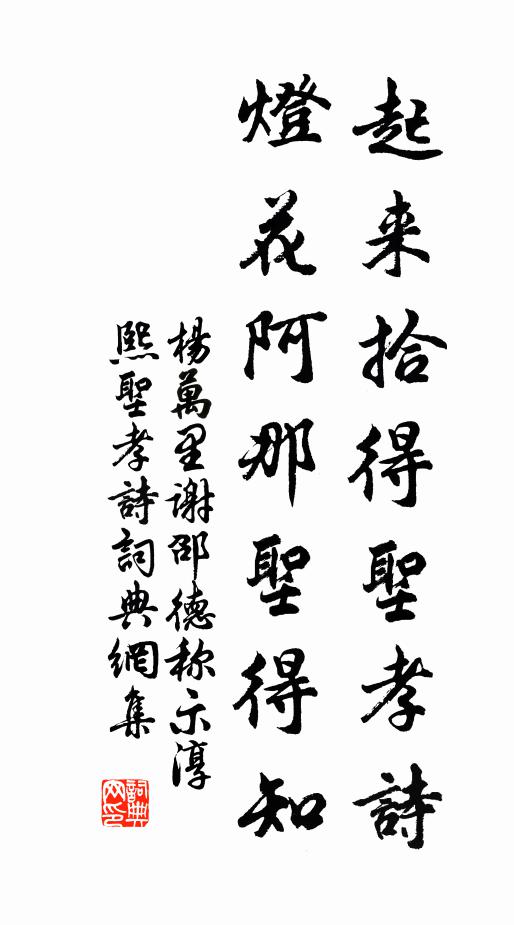 起来拾得聖孝詩
燈花阿那聖得知
楊萬里谢邵德称示淳
熙聖孝詩詞典網集
詞典